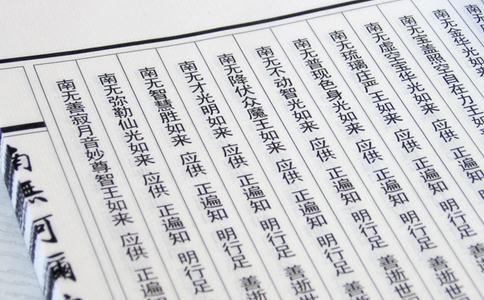 南无金华光如
南无宝盖照空自在力王如
南无虚空宝华光如来 应供
南无琉璃庄严王如来 应供 正遍知
南无普现色身光如来 应供 正遍知 明行足 善逝世
南无不动智光如来 应供 正遍知 明行足 善逝世
南无降伏众魔王如来 应供 正遍知 明行足 善逝
南无才光明如来 应供 正遍知 明行足 善逝
南无智慧胜如来 应供 正遍知 明行足 善
南无弥勒仙光如来 应供 正遍知 明行足
南无善寂月音妙尊智王如来 应供 正遍
南無阿彌